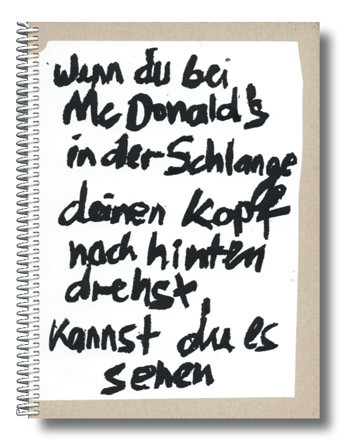 Wenn du bei
McDonald's
in der Schlange
deinen Kopf
nach hinten
drehst,
kannst du es
sehen